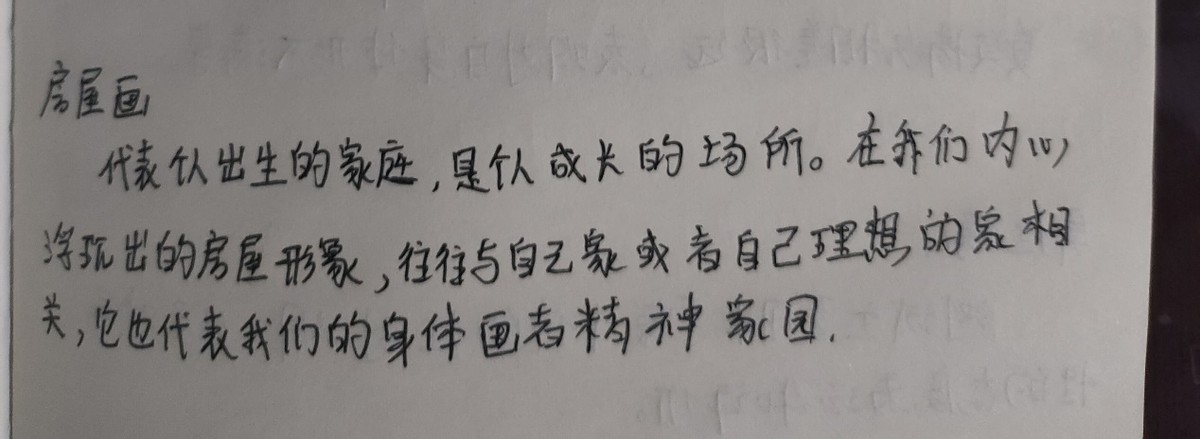 房屋画
代表个人出生的家庭,是个人成长的场所。在我们内心
浮现出的房屋形象,往往与自己家或者自己理想的家相
关,它也代表我们的身体画者精神家园.